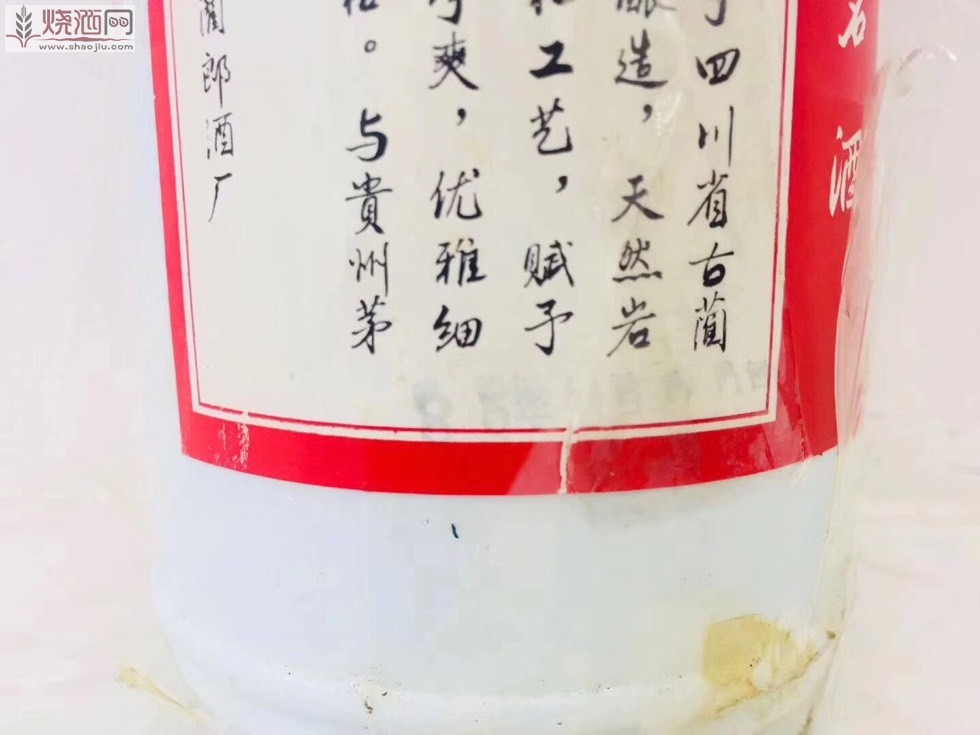 烧酒网
www.shaojiu.com
名酒
四川省古蔺
酿造，天然岩
工艺，赋予
爽，优雅细
。与貴州茅
蔺郎酒厂